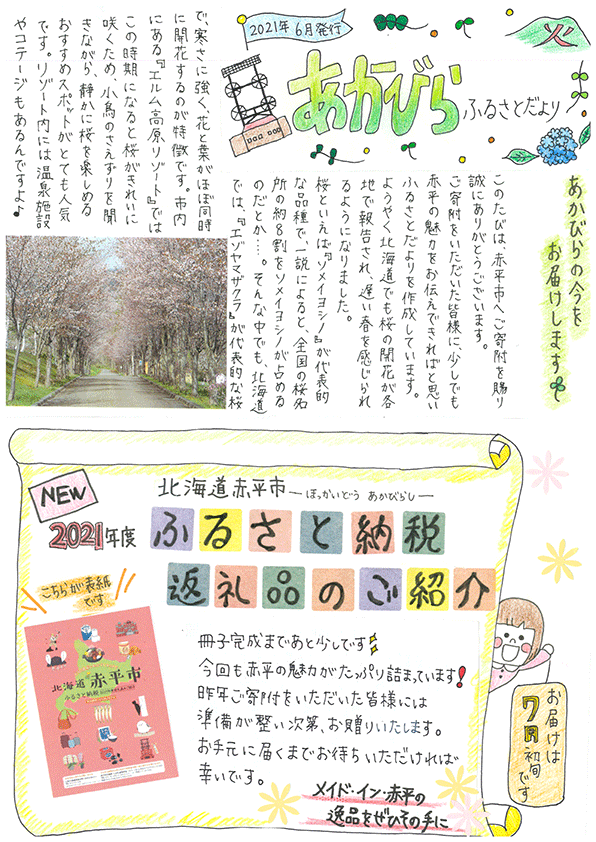 2021年6月発行
あかびら
ふるさとだより
火
あかびらの今を
お届けします
このたびは、赤平市へご寄附を賜り
誠にありがとうございます。
ご寄附をいただいた皆様に、少しでも
赤平の魅力をお伝えできればと思い
ふるさとだよりを作成しています。
ようやく北海道でも桜の開花が各
地で報告され、遅い春を感じられ
るようになりました。
桜といえば『ソメイヨシノ』が代表的
な品種で、一説によると、全国の桜名
所の約8割をソメイヨシノが占める
のだとか…。そんな中でも、北海道
では、『エゾヤマザクラ』が代表的な桜
で、寒さに強く、花と葉がほぼ同時
に開花するのが特徴です。市内
にある『エルム高原リゾート』では
この時期になると桜がきれいに
咲くため、小鳥のさえずりを聞
きながら、静かに桜を楽しめる
おすすめスポットがとても人気
です。リゾート内には温泉施設
やコテージもあるんですよ♪
NEW
北海道赤平市
―ほっかいどう あかびらし―
2021年度
ふるさと納税
返礼品のご紹介
こちらが表紙
です
北海道 赤平市
冊子完成まであと少しです
今回も赤平の魅力がたっぷり詰まっています!
昨年ご寄附をいただいた皆様には
準備が整い次第、お贈りいたします。
お手元に届くまでお待ちいただければ
幸いです。
メイド・イン・赤平の
逸品をぜひその手に
お届けは
7月初旬です